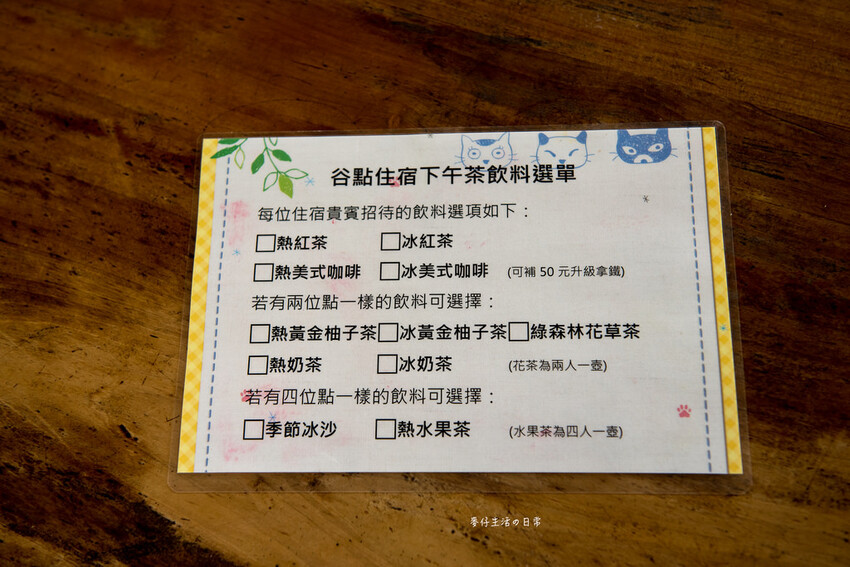 谷點住宿下午茶飲料選單
每位住宿貴賓招待的飲料選項如下：
□熱紅茶 □冰紅茶
□熱美式咖啡 □冰美式咖啡 (可補 50 元升級拿鐵)
若有兩位點一樣的飲料可選擇：
□熱黃金柚子茶□冰黃金柚子茶□綠森林花草茶
□熱奶茶 □冰奶茶 (花茶為兩人一壺)
若有四位點一樣的飲料可選擇：
□季節冰沙 □熱水果茶 (水果茶為四人一壺)
麥仔生活の日常